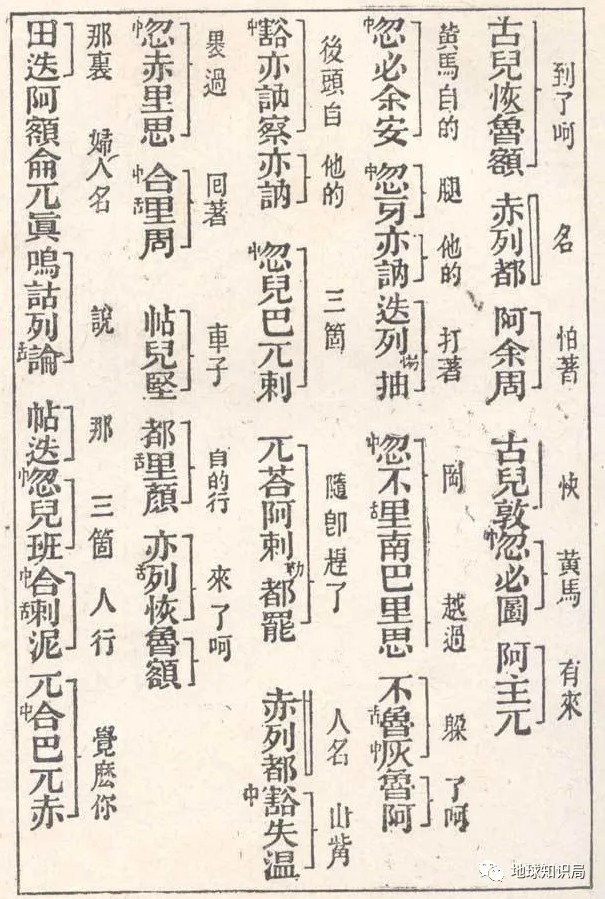 到了呵 名 怕著 快 黃馬 有來
古兒恢魯額 赤列都 阿余周 古兒敦中忽必圖 阿主兀
黃馬自的 腿 他的 打著 岡 越過 躲 了呵
中忽必余安 中忽牙亦訥 迭列惕抽 中忽不舌里南巴里思 不舌魯中灰魯阿
後頭自 他的 三箇 隨卽趕了 人名 山觜
中豁亦訥察亦訥 中忽兒巴兀剌 兀荅阿剌勒都罷 赤列都 中豁失溫
過 囘著 車子 自的行 來了呵
中忽赤里思 中合舌里周 帖兒堅 都舌里顏 亦舌列恢魯額
那裏 婦人名 說 那 三箇 人行 覺麽你
田迭阿額侖兀眞嗚詁列舌論 帖迭中忽兒班中合舌剌泥兀中合巴兀赤
地球知识局